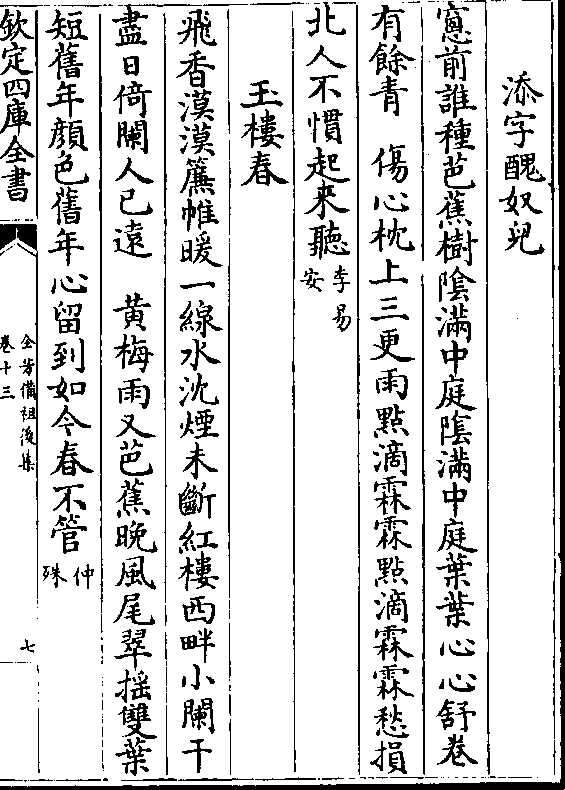 添字醜奴兒
窻前誰種芭蕉樹隂滿中庭隂滿中庭葉葉心心舒卷
有餘青　傷心枕上三更雨點滴霖霖點滴霖霖愁損
北人不慣起来聽李易安
玉樓春
飛香漠漠簾帷暖一線水沈煙未斷紅樓西畔小闌干
盡日倚闌人已遠　黄梅雨又芭蕉晚鳳尾翠揺雙葉
短舊年顔色舊年心留到如今春不管仲殊
欽定四庫全書
全芳備祖後集
卷十三
七